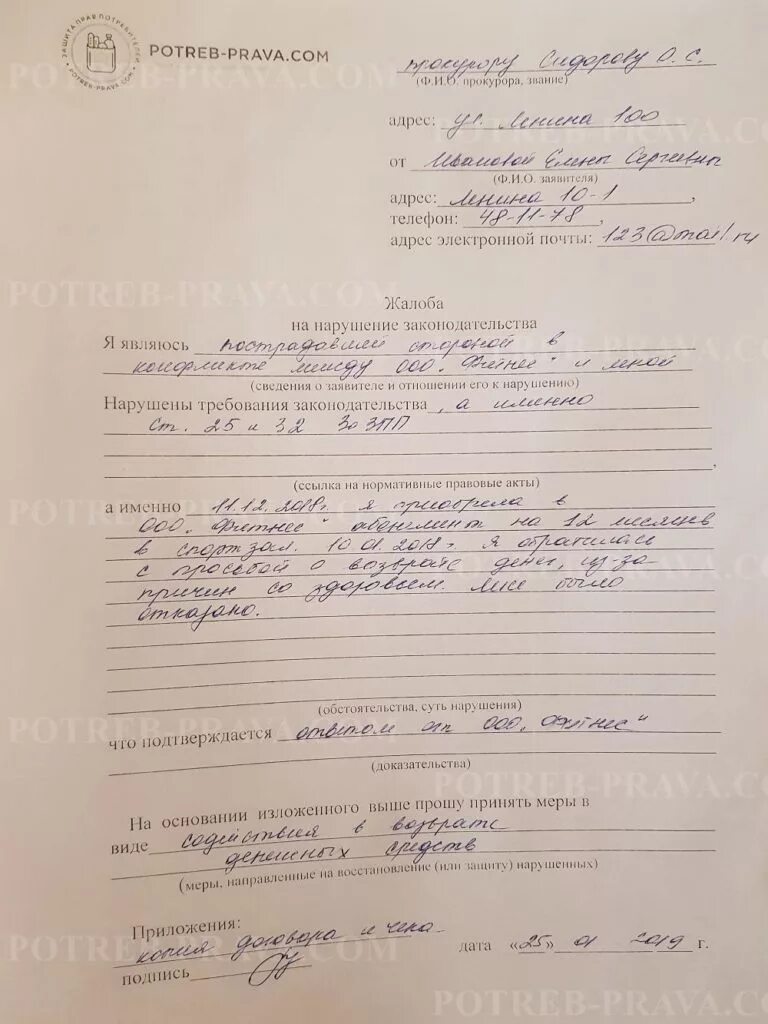 ЗАЩИТА ПРАВ ПОТРЕБИТЕЛЕЙ
POTREB-PRAVA.COM
POTREB-PRAVA.COM
прокурору Сидорову О. С.
(Ф.И.О. прокурора, звание)
адрес: ул. Ленина 100
от Ивановой Елены Сергевны
(Ф.И.О. заявителя)
адрес: Ленина 10-1,
телефон: 48-11-78,
адрес электронной почты: 123@mail.ru
Жалоба
на нарушение законодательства
Я являюсь пострадавшей стороной в
конфликте между ООО „Фитнес" и мной
(сведения о заявителе и отношении его к нарушению)
Нарушены требования законодательства, а именно
ст. 25 и 32 ЗоЗПП
(ссылка на нормативные правовые акты)
а именно 11.12.2018г. я приобрела в
ООО „Фитнес" абонимент на 12 месяцев
в спортзал. 10.01.2018г. я обратилась
с просьбой о возврате денег, из-за
причин со здоровьем. Мне было
отказано.
(обстоятельства, суть нарушения)
что подтверждается ответом от ООО „Фитнес"
(доказательства)
На основании изложенного выше прошу принять меры в
виде содействия в возврате
денежных средств
(меры, направленные на восстановление (или защиту) нарушенных)
Приложения:
копия договора и чека
дата «25» 01 2019 г.
подпись
POTREB-PRAVA.COM
POTREB-PRAVA.COM
POTREB-PRAVA.COM
POTREB-PRAVA.COM
POTREB-PRAVA.COM
POTREB-PRAVA.COM